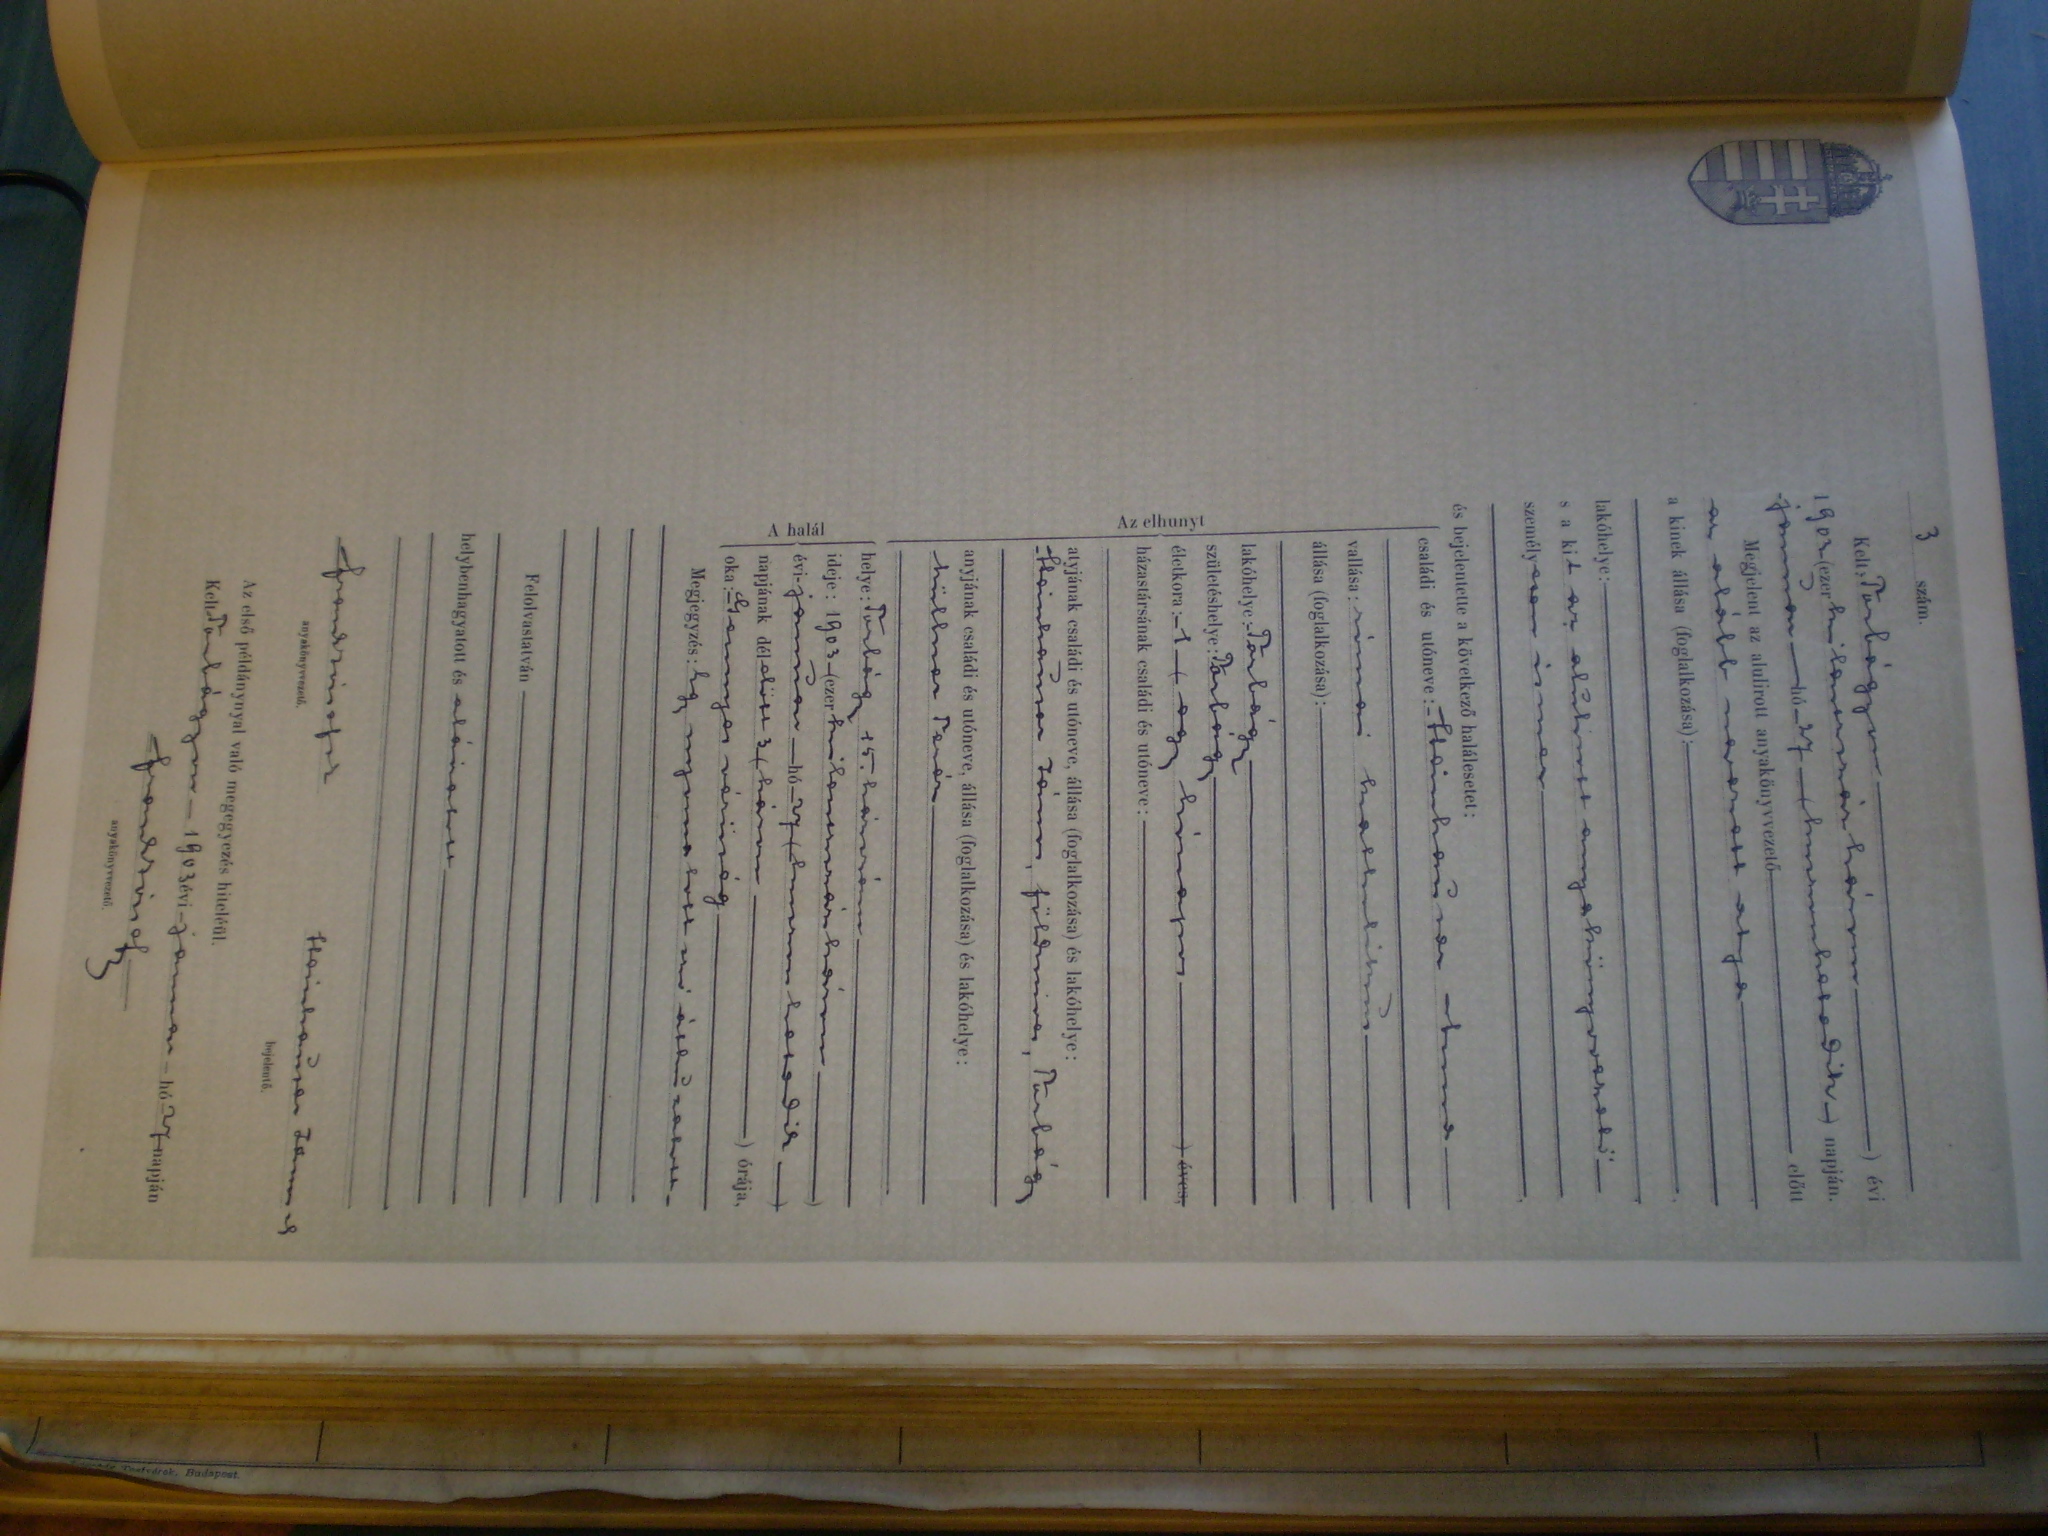 3 szám.
Kelt: Torbágyon ) évi
1903 (ezer kilenczszázhárom
januar hó 27 (huszonhetedik) napján.
Megjelent az alulirott anyakönyvvezető előtt
az alább nevezett atya
a kinek állása (foglalkozása):
lakóhelye:
s a kit az alúlirott anyakönyvvezető
személyesen ismer
és bejelentette a következő halálesetet:
Az elhunyt
családi és utóneve: Steinhauser Anna
vallása: római katholikus
állása (foglalkozása):
lakóhelye: Torbágy
születéshelye: Torbágy
életkora: 1 (egy hónapos ) éves,
házastársának családi és utóneve:
atyjának családi és utóneve, állása (foglalkozása) és lakóhelye:
Steinhauser János, földmives, Torbágy
anyjának családi és utóneve, állása (foglalkozása) és lakóhelye:
Teréz
A halál
helye: Torbágy 15. házszám
ideje: 1903 (ezer kilenczszázhárom )
évi januar hó 27 (huszonhetedik )
napjának dél előtt 3 (három ) órája,
oka:
Megjegyzés: Egy nyomtatott szó
Felolvastatván
helybenhagyatott és aláiratott
anyakönyvvezető.
Steinhauser János
bejelentő.
Az első példánynyal való megegyezés hiteléül.
Kelt Torbágyon 1903 évi januar hó 27 napján
anyakönyvvezető.
Testvérek, Budapest.